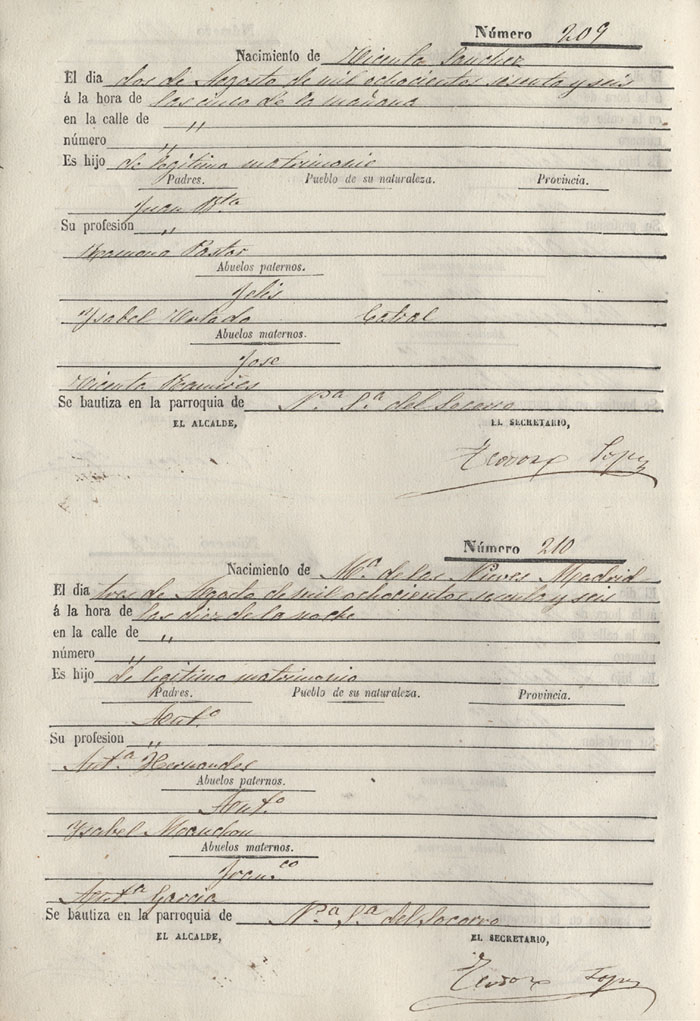 Número 209
Nacimiento de Vicenta Sanchez
El dia dos de Agosto de mil ochocientos sesenta y seis
á la hora de las cinco de la mañana
en la calle de "
número "
Es hijo de legitimo matrimonio
Padres. Pueblo de su naturaleza. Provincia.
Juan Bta
Su profesion "
Ramona Pastor
Abuelos paternos.
Felis
Ysabel Hurtado Catral
Abuelos maternos.
Jose
Vicenta Ramires
Se bautiza en la parroquia de Na Sa del Socorro
EL ALCALDE, EL SECRETARIO,
Teodoro Lopez
Número 210
Nacimiento de Ma de las Nieves Madrid
El dia tres de Agosto de mil ochocientos sesenta y seis
á la hora de las diez de la noche
en la calle de "
número "
Es hijo de legitimo matrimonio
Padres. Pueblo de su naturaleza. Provincia.
Anto
Su profesion "
Anta Hernandez
Abuelos paternos.
Anto
Ysabel Manchon
Abuelos maternos.
Franco
Anta Garcia
Se bautiza en la parroquia de Na Sa del Socorro
EL ALCALDE, EL SECRETARIO,
Teodoro Lopez